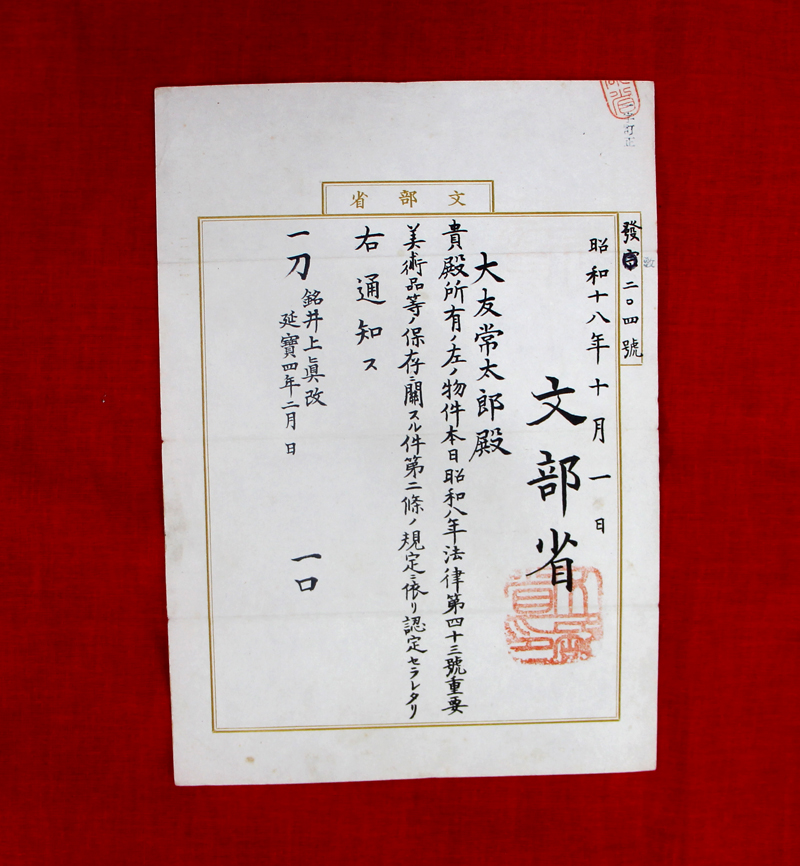 文部省
發教二〇四號
昭和十八年十月一日
文部省
大友常太郎殿
貴殿所有ノ左ノ物件本日昭和八年法律第四十三號重要
美術品等ノ保存ニ關スル件第二條ノ規定ニ依リ認定セラレタリ
右通知ス
一刀 銘井上眞改
延寶四年二月日
一口